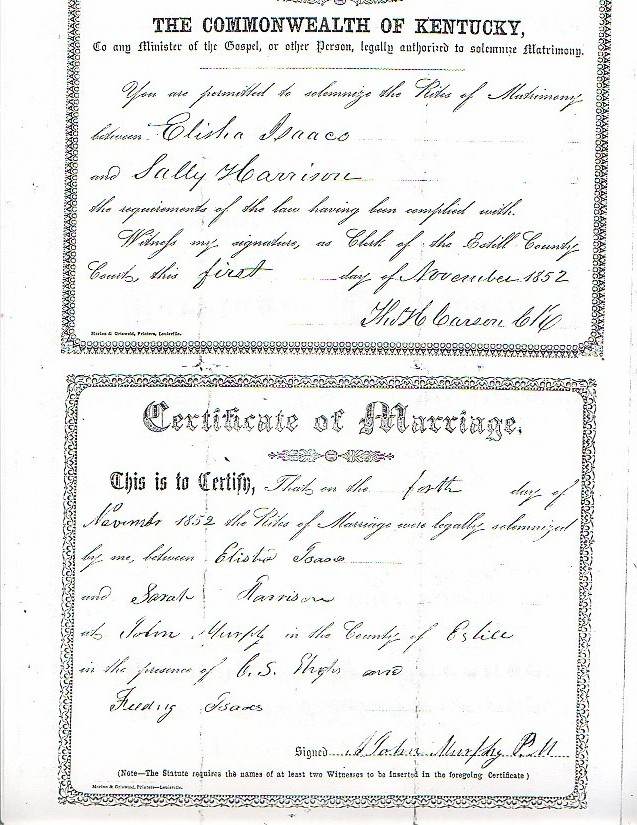 THE COMMONWEALTH OF KENTUCKY,
To any Minister of the Gospel, or other Person, legally authorized to solemnize Matrimony.
You are permitted to solemnize the Rites of Matrimony
between Elisha Isaacs
and Sally Harrison
the requirements of the law having been complied with.
Witness my signature, as Clerk of the Estill County
Court, this first day of November 1852
Tho H Carson Clk
Marion & Griswold, Printers, Louisville.
Certificate of Marriage.
This is to Certify, That on the forth day of
November 1852 the Rites of Marriage were legally solemnized
by me, between Elisha Isaacs
and Sarah Harrison
at John Murphy in the County of Estill
in the presence of C. S. and
Isaacs
Signed John Murphy P. M
(Note—The Statute requires the names of at least two Witnesses to be inserted in the foregoing Certificate)
Marion & Griswold, Printers—Louisville.